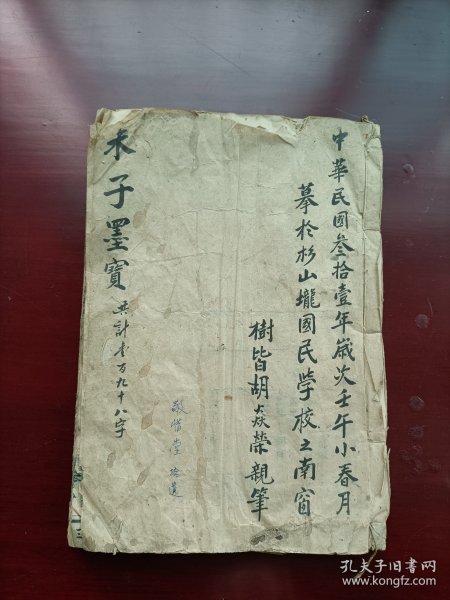 中華民國叁拾壹年歲次壬午小春月
摹於杉山壠國民學校之南窗
樹皆胡焱榮親筆
朱子墨寶
共計壹百九十八字
敬惜堂
孔夫子旧书网
www.kongfz.com